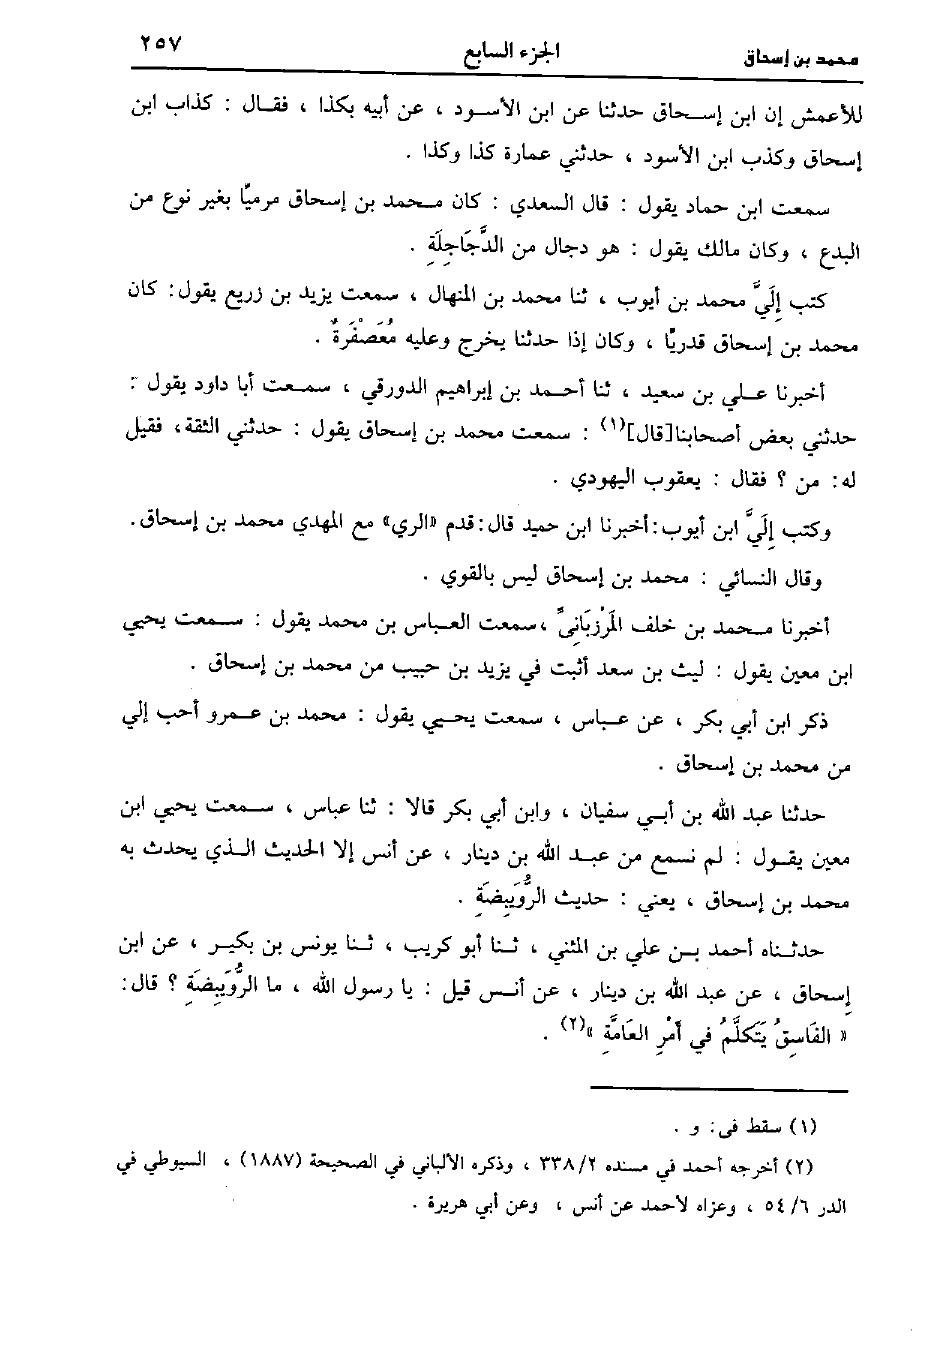 محمد بن إسحاق الجزء السابع ٢٥٧
للأعمش إن ابن إسحاق حدثنا عن ابن الأسود ، عن أبيه بكذا ، فقال : كذاب ابن
إسحاق وكذب ابن الأسود ، حدثني عمارة كذا وكذا .
سمعت ابن حماد يقول : قال السعدي : كان محمد بن إسحاق مرميًا بغير نوع من
البدع ، وكان مالك يقول : هو دجال من الدَّجَاجِلَةِ .
كتب إِلَيَّ محمد بن أيوب ، ثنا محمد بن المنهال ، سمعت يزيد بن زريع يقول: كان
محمد بن إسحاق قدريًا ، وكان إذا حدثنا يخرج وعليه مُعَصْفَرةٌ .
أخبرنا علي بن سعيد ، ثنا أحمد بن إبراهيم الدورقي ، سمعت أبا داود يقول :
حدثني بعض أصحابنا[قال](١) : سمعت محمد بن إسحاق يقول : حدثني الثقة، فقيل
له: من ؟ فقال : يعقوب اليهودي .
وكتب إِلَيَّ ابن أيوب: أخبرنا ابن حميد قال: قدم «الري» مع المهدي محمد بن إسحاق.
وقال النسائي : محمد بن إسحاق ليس بالقوي .
أخبرنا محمد بن خلف المَرْزبَانِيَّ ،سمعت العباس بن محمد يقول : سمعت يحيي
ابن معين يقول : ليث بن سعد أثبت في يزيد بن حبيب من محمد بن إسحاق .
ذكر ابن أبي بكر ، عن عباس ، سمعت يحيي يقول : محمد بن عمرو أحب إلي
من محمد بن إسحاق .
حدثنا عبد الله بن أبي سفيان ، وابن أبي بكر قالا : ثنا عباس ، سمعت يحيي ابن
معين يقول : لم نسمع من عبد الله بن دينار ، عن أنس إلا الحديث الذي يحدث به
محمد بن إسحاق ، يعني : حديث الرُّوَيبِضَةِ .
حدثناه أحمد بن علي بن المثني ، ثنا أبو كريب ، ثنا يونس بن بكير ، عن ابن
إسحاق ، عن عبد الله بن دينار ، عن أنس قيل : يا رسول الله ، ما الرُّوَيبِضَةِ ؟ قال:
« الفَاسِقُ يَتَكَلَّمُ في أَمْرِ العَامَّةِ »(٢) .
(١) سقط فى: و .
(٢) أخرجه أحمد في مسنده ٣٣٨/٢ ، وذكره الألباني في الصحيحة (١٨٨٧) ، السيوطي في
الدر ٥٤/٦ ، وعزاه لأحمد عن أنس ، وعن أبي هريرة .